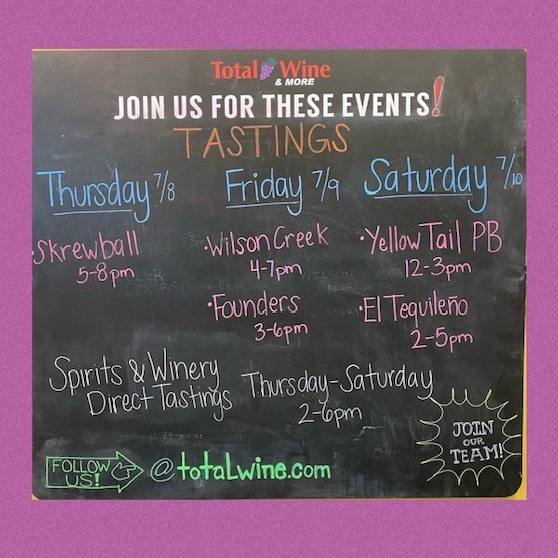 Total Wine
& MORE
JOIN US FOR THESE EVENTS!
TASTINGS
Thursday 7/8
Skrewball
5-8pm
Friday 7/9
•Wilson Creek
4-7pm
•Founders
3-6pm
Saturday 7/10
•Yellow Tail PB
12-3pm
•El Tequileño
2-5pm
Spirits & Winery
Direct Tastings
Thursday-Saturday
2-6pm
FOLLOW
US!
@totaLwine.com
JOIN
OUR
TEAM!